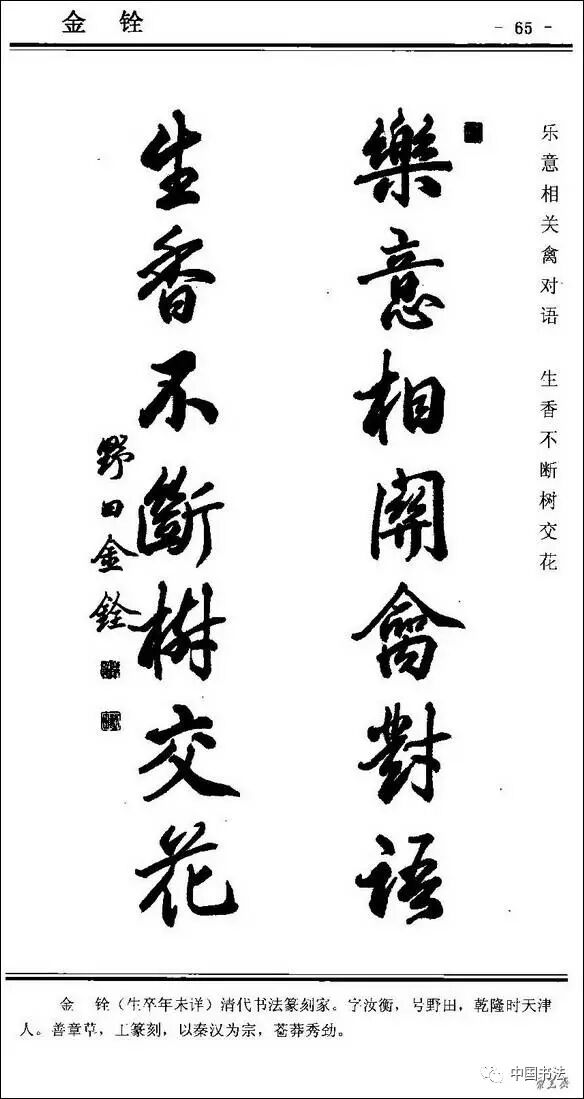 金 铨
- 65 -
乐意相关禽对语 生香不断树交花
樂意相關禽對語
生香不斷樹交花
野田金銓
金 铨（生卒年未详）清代书法篆刻家。字汝衡，号野田，乾隆时天津
人。善章草，工篆刻，以秦汉为宗，苍莽秀劲。
中国书法